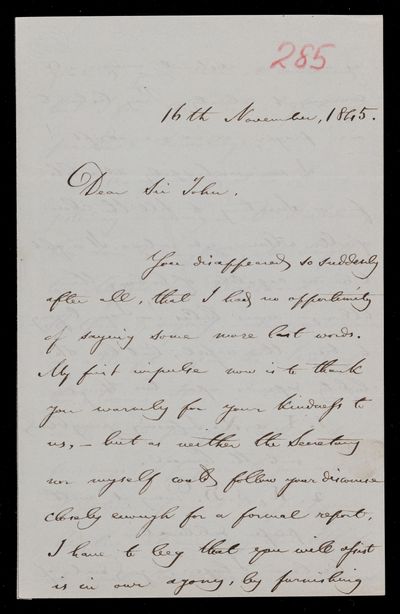 285
16th November, 1865.
Dear Sir John,
You disappeared so suddenly
after all, that I had no opportunity
of saying some more last words.
My first impulse now is to thank
you warmly for your kindness to
us, – but as neither the Secretary
nor myself could follow your discourse
closely enough for a formal report,
I have to beg that you will assist
us in our agony, by furnishing